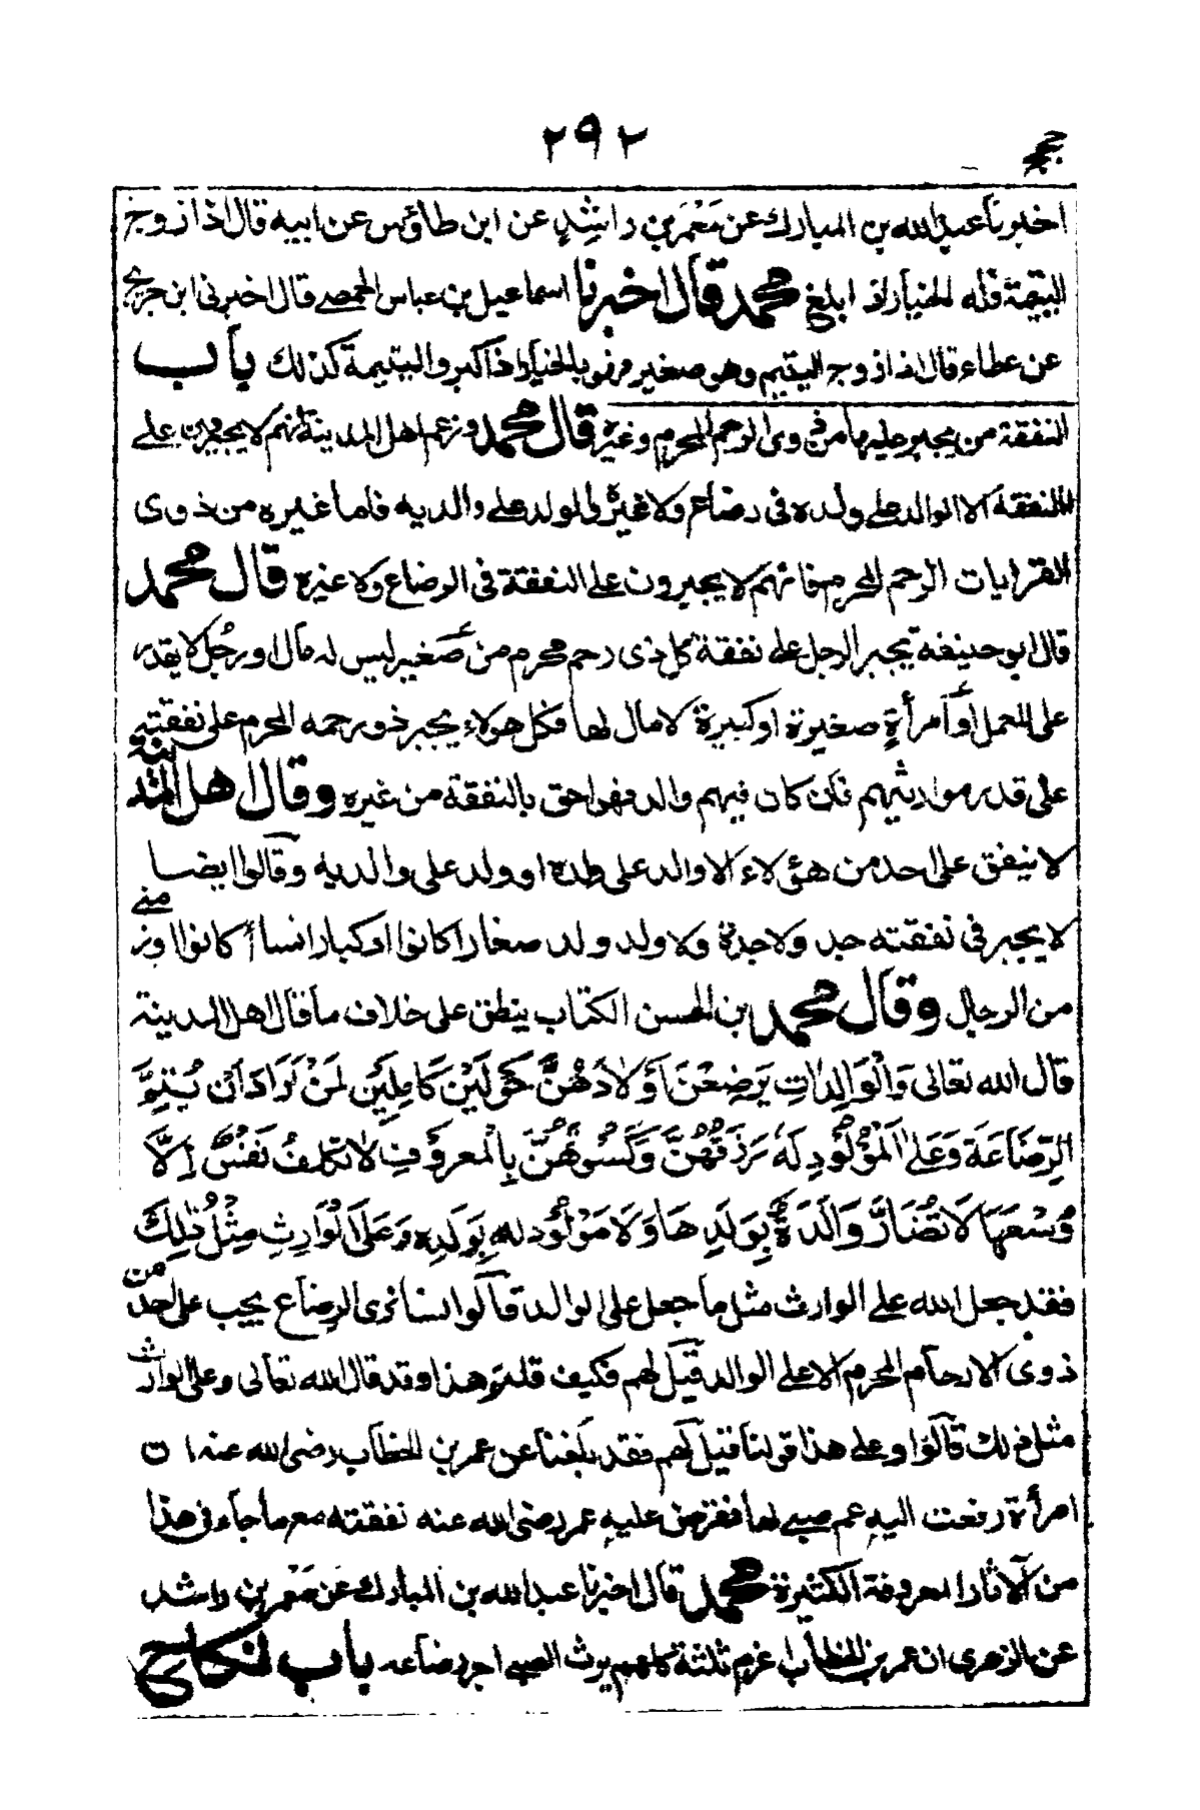 ٢٩٢
اخبرنا عبد الله بن المبارك عن مَعْمَر بن راشِدٍ عن ابن طاؤس عن ابيه قال اذا زوج
اليتيمة فله الخيار اذا ابلغ محمد قال اخبرنا اسماعيل بن عباس الحمصے قال اخبرنی ابن جريج
عن عطاء قال اذا زوج اليتيم وهو صغير فهو بالخيار اذا كبر واليتيمة كذلك باب
النفقة من يجبر عليها من ذوی الرحم المحرم وغيره قال محمد وزعم اهل المدينة انهم لا يجبرون علے
النفقة الا الوالد علے ولده فی رضاع ولا غيره والولد علے والديه فاما غيره من ذوی
القرابات الرحم المحرم فانهم لا يجبرون علے النفقة فی الرضاع ولا غيره قال محمد
قال ابو حنيفة يجبر الرجل علے نفقة كل ذی رحم محرم من صغير ليس له مال او رجُل لا يقدر
علی العمل او امرأةٍ صغيرة او كبيرة لا مال لها فكل هولاء يجبر ذو رحمه المحرم علی نفقته
علی قدر مواريثهم فان كان فيهم والد فهو احق بالنفقة من غيره وقال اهل المدينة
لا ينفق علی احد من هؤلاء الا والد علی ولده او ولد علی والديه وقالوا ايضا
لا يجبر فی نفقته جد ولا جدة ولا ولد ولد صغارا كانوا او كبارا نساأ كانوا او
من الرجال وقال محمد بن الحسن الكتاب ينطق علی خلاف ما قال اهل المدينة
قال الله تعالی وَالْوَالِدَاتِ يَرضِعْنَ اَوْلادَهُنَّ حَوْلَيْنِ كَامِلَيْنِ لَمَنْ اَرَادَ اَنْ يُتِمَّ
الرِّضَاعَةَ وَعَلَی الْمَوْلُوْدِ لَهٗ رِزْقُهُنَّ وَكِسْوَتُهُنَّ بِالْمَعرُوْفِ لا تكلفُ نَفْسٌ اِلَّا
وُسْعَهَا لَا تُضَارَّ وَالِدَةٌ بِوَلَدِهَا وَلَا مَوْلُوْد له بِوَلَدِه وَعَلَی الْوَارِثِ مِثْلُ ذٰلِكَ
فقد جعل الله علے الوارث مثل ما جعل علی الوالد قالوا لسنا نری الرضاع يجب علی احد من
ذوی الارحام المحرم الا علے الوالد قيل لهم فكيف قلتم هذا وقد قال الله تعالی وعلی الوارث
مثل ذلك قالوا وعلے هذا قولنا قيل لهم فقد بلغنا عن عمر بن الخطاب رضی الله عنه ان
امرأة رفعت اليه عم صبے لها ففرض عليه عمر رضی الله عنه نفقته مع ما جاء فی هذا
من الآثار المعروفة الكثيرة محمد قال اخبرنا عبد الله بن المبارك عن مَعْمر بن راشد
عن الزهری ان عمر بن الخطاب اغرم ثلثة كلهم يورث الصبے اجر رضاعه باب نكاح